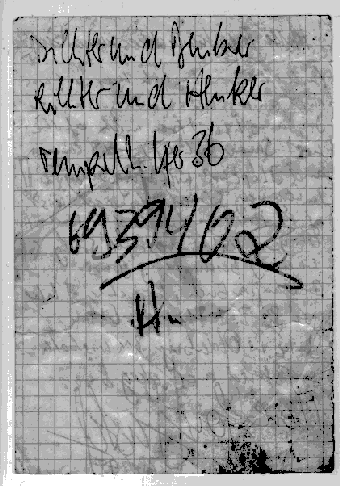 Dichter und Denker
Richter und Henker
Tempelh. Ufer 36
6939402